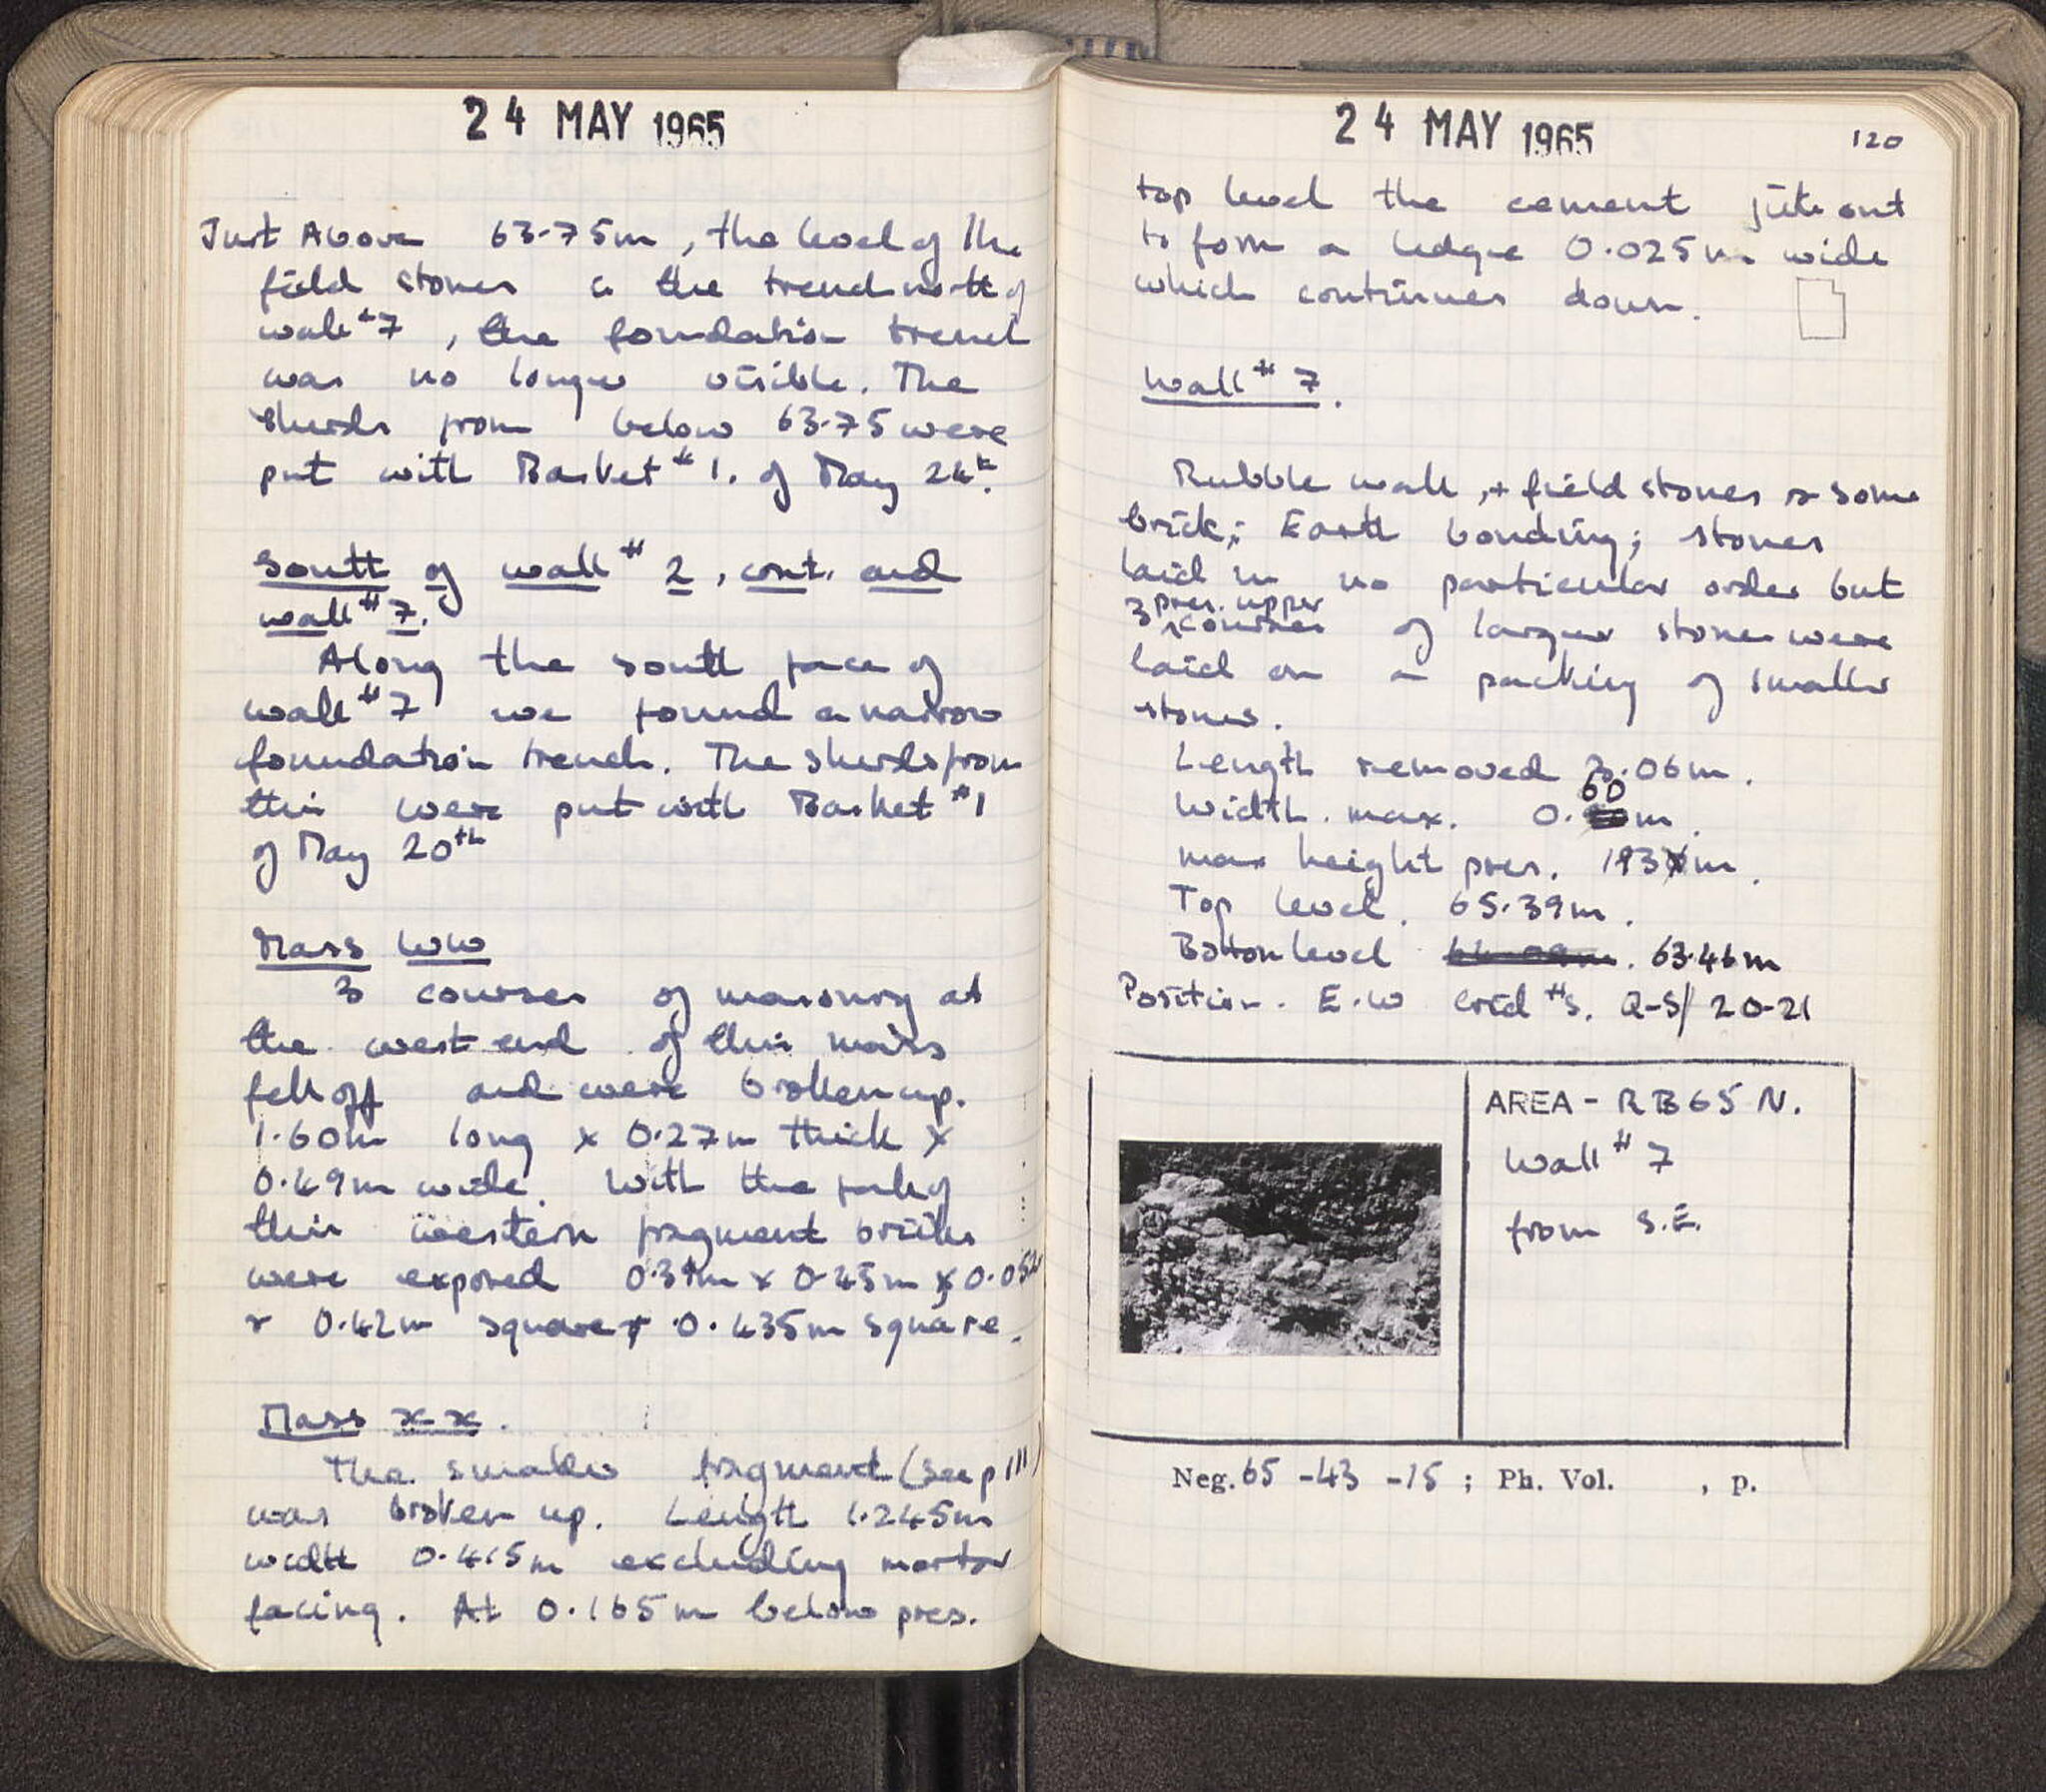 24 MAY 1965
Just Above 63.75m, the level of the
field stones in the trench north of
wall #7, the foundation trench
was no longer visible. The
sherds from below 63.75 were
put with Basket #1. of May 24th.
South of wall # 2, cont. and
wall # 7.
Along the south face of
wall #7 we found a narrow
foundation trench. The sherds from
this were put with Basket #1
of May 20th
Mass WW
3 courses of masonry at
the west end of this mass
fell off and were broken up.
1.60m long x 0.27m thick x
0.49m wide. With the fall of
this western fragment bricks
were exposed x 0.45m x
+ 0.42m square + 0.435m square.
Mass XX.
The smaller fragment (see p 111)
was broken up. Length 1.245m
width 0.415m excluding mortar
facing. At 0.165m below pres.
24 MAY 1965
120
top level the cement juts out
to form a ledge 0.025m wide
which continues down.
Wall # 7.
Rubble wall, field stones + some
brick; Earth bonding; stones
laid in no particular order but
3 pres. upper courses of larger stones were
laid on a packing of smaller
stones.
Length removed 3.06m.
Width. max. 0.60m.
max height pres. m.
Top level. 65.39m.
Bottom level 63.46m
Position. E.W Grid #s. Q-S/ 20-21
AREA - RB65 N.
Wall # 7
from S.E.
Neg. 65 -43 -15 ; Ph. Vol. , p.